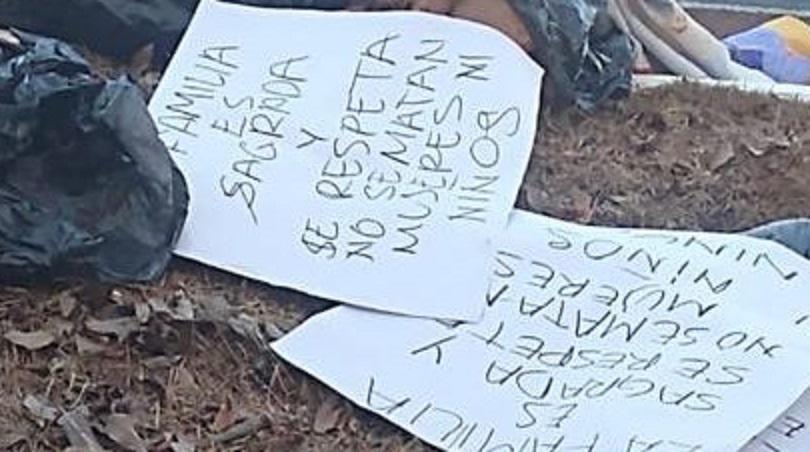 FAMILIA
ES
SAGRADA
Y
SE RESPETA
NO SE MATAN
MUJERES NI
NIÑOS
LA FAMILIA
ES
SAGRADA Y
SE RESPETA
NO SE MATAN
MUJERES
NIÑOS